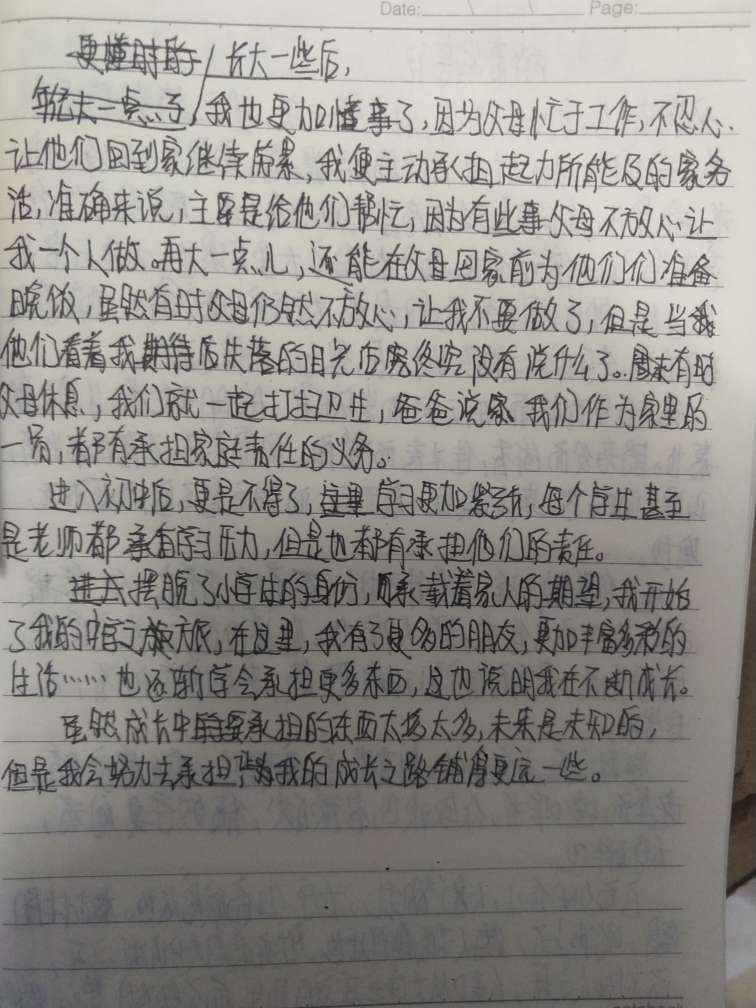 Date: / / Page:
更懂时时于 长大一些后,
年纪大一点子,我也更加懂事了,因为父母忙于工作,不忍心
让他们回到家继续劳累,我便主动承担起力所能及的家务
活,准确来说,主要是给他们帮忙,因为有些事父母不放心让
我一个人做。再大一点儿,还能在父母回家前为他们们准备
晚饭,虽然有时父母仍然不放心,让我不要做了,但是当我
他们看着我期待后失落的目光后终究没有说什么了。周末有时
父母休息,我们就一起打扫卫生,爸爸说家我们作为家里的
一员,都有承担家庭责任的义务。
进入初中后,更是不得了,这里学习更加紧张,每个学生甚至
是老师都承有学习压力,但是也都有承担他们的责任。
进式摆脱了小学生的身份,承载着家人的期望,我开始
了我的中学之旅,在这里,我有了更多的朋友,更加丰富多彩的
生活……也逐渐学会承担更多东西,这也说明我在不断成长。
虽然成长中需要承担的东西太多太多,未来是未知的,
但是我会努力去承担,为我的成长之路铺得更远一些。